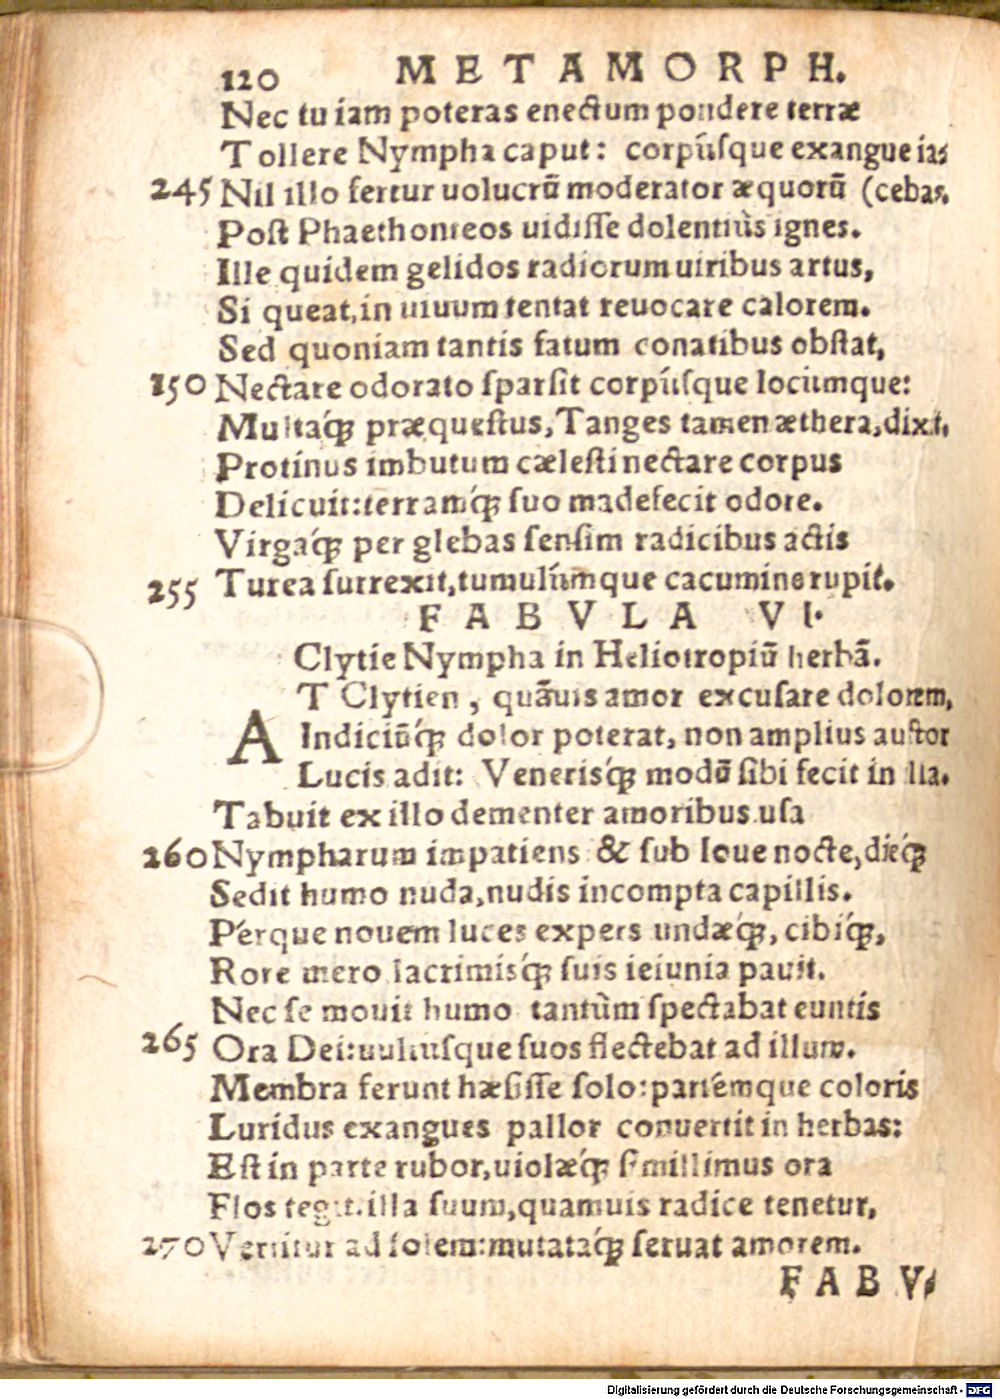 120 METAMORPH.
Nec tu iam poteras enectum pondere terræ
Tollere Nympha caput: corpúsque exangue ia-
245 Nil illo fertur uolucrũ moderator æquorũ (cebas.
Post Phaethonteos uidisse dolentiùs ignes.
Ille quidem gelidos radiorum uiribus artus,
Si queat, in uiuum tentat reuocare calorem.
Sed quoniam tantis fatum conatibus obstat,
150 Nectare odorato sparsit corpúsque locúmque:
Multáq; præquestus, Tanges tamen æthera, dixit.
Protinus imbutum cælesti nectare corpus
Delicuit: terramq́; suo madefecit odore.
Virgaq́; per glebas sensim radicibus actis
255 Turea surrexit, tumulúmque cacumine rupit.
FABVLA VI.
Clytie Nympha in Heliotropiũ herbã.
AT Clytien, quãuis amor excusare dolorem,
Indiciũq́; dolor poterat, non amplius auctor
Lucis adit: Venerisq́; modũ sibi fecit in illa.
Tabuit ex illo dementer amoribus usa
260 Nympharum impatiens & sub Ioue nocte, dieq́;
Sedit humo nuda, nudis incompta capillis.
Pérque nouem luces expers undæq́;, cibiq́;,
Rore mero lacrimisq́; suis ieiunia pauit.
Nec se mouit humo tantùm spectabat euntis
265 Ora Dei: uultusque suos flectebat ad illum.
Membra ferunt hæsisse solo: partémque coloris
Luridus exangues pallor conuertit in herbas:
Est in parte rubor, uiolæq́; simillimus ora
Flos tegit. illa suum, quamuis radice tenetur,
270 Vertitur ad solem: mutataq́; seruat amorem.
FABV-
Digitalisierung gefördert durch die Deutsche Forschungsgemeinschaft - DFG